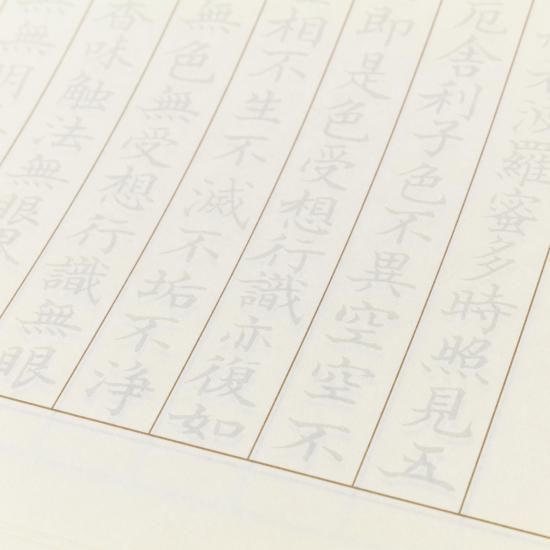 波羅蜜多時照見五
厄舎利子色不異空空不
即是色受想行識亦復如
相不生不滅不垢不浄
無色無受想行識無眼
香味触法無眼界
無無明